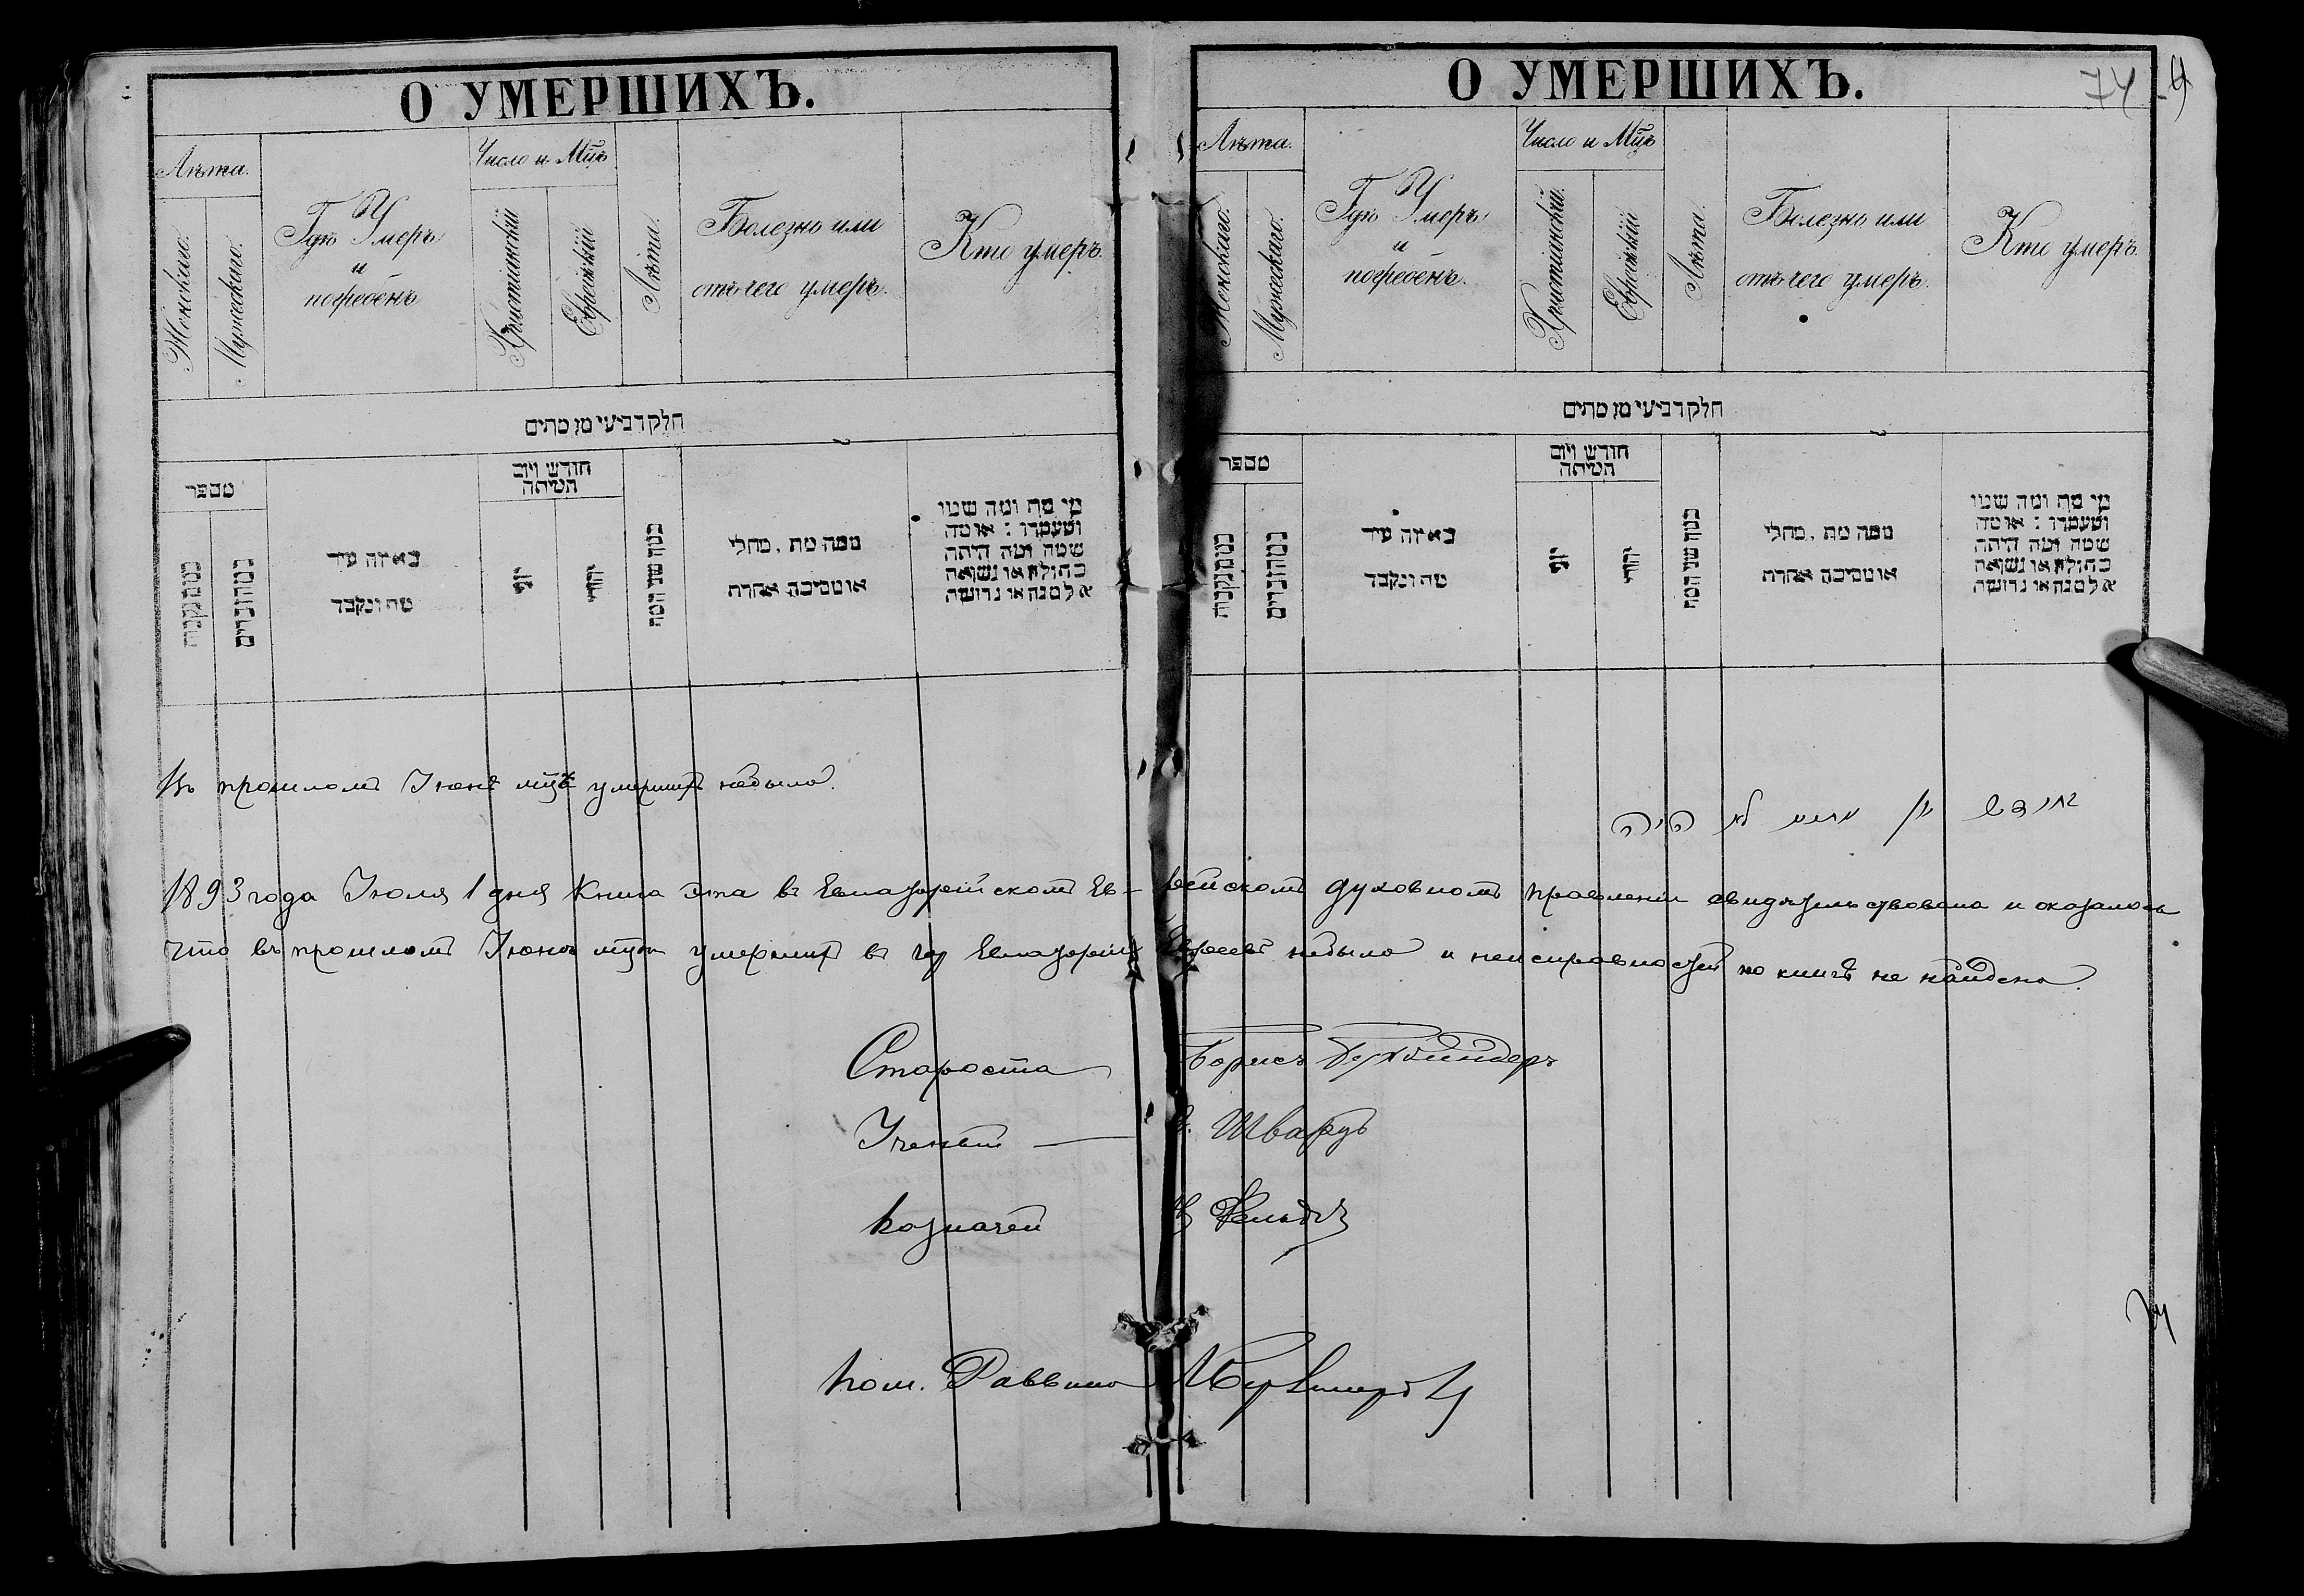 О УМЕРШИХЪ.
Лѣта.
Женскаго.
Мужескаго.
Гдѣ Умеръ
и
погребенъ
Число и Мцъ
Христіанскій
Еврейскій
Лѣта.
Болезнь или
отъ чего умеръ.
Кто умеръ.
חלק רביעי מן מתים
מספר
באיזה עיר
מת ונקבר
חודש ויום
המיתה
יוני
יהודי
ממה מת, מחלי
או מסיבה אחרת
מי מת ומה שמו
ומעמדו : או מה
שמה ומה היתה
בתולה או נשואה
אלמנה או גרושה
О УМЕРШИХЪ.
74
Лѣта.
Женскаго.
Мужескаго.
Гдѣ Умеръ
и
погребенъ.
Число и Мцъ
Христіанскій.
Еврейскій
Лѣта.
Болезнь или
отъ чего умеръ.
Кто умеръ.
חלק רביעי מן מתים
מספר
באיזה עיר
מת ונקבר
חודש ויום
המיתה
יוני
יהודי
ממה מת, מחלי
או מסיבה אחרת
מי מת ומה שמו
ומעמדו : או מה
שמה ומה היתה
בתולה או נשואה
אלמנה או גרושה
Въ прошломъ Іюнѣ мцѣ умершихъ небыло.
לא היה
1893 года Іюля 1 дня Книга эта въ Евпаторійскомъ Ев-рейскомъ духовномъ правленіи свидѣтельствована и оказалось
что въ прошломъ Іюнѣ мцѣ умершихъ въ гор Евпаторіи Евреевъ небыло и неисправностей по книгѣ не найдено.
Староста Борисъ Бухбиндеръ
Ученый — Шварцъ
Казначей
Раввинъ